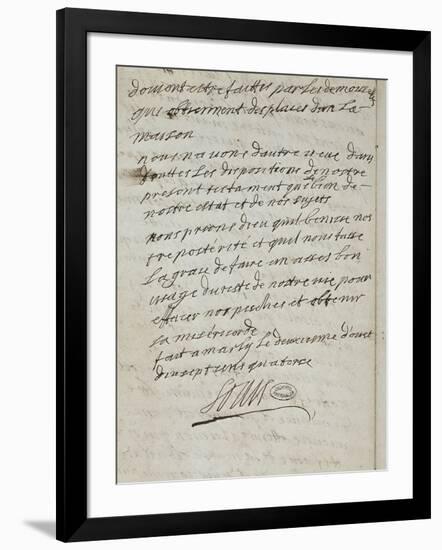 doivent estre faittes par les demoiselles
qui obtiennent des places dans la
maison
nous navons dautre veue dans
touttes les dispositions de nostre
present testament que le bien de
nostre estat et de nos sujets
nous prions dieu quil benisse nos
tre posterité et quil nous fasse
la grace de faire un asses bon
usage du reste de nostre vie pour
effacer nos peches et obtenir
sa misericorde
fait a marly le deuxiesme daoust
dixsept cens quatorze
Louis